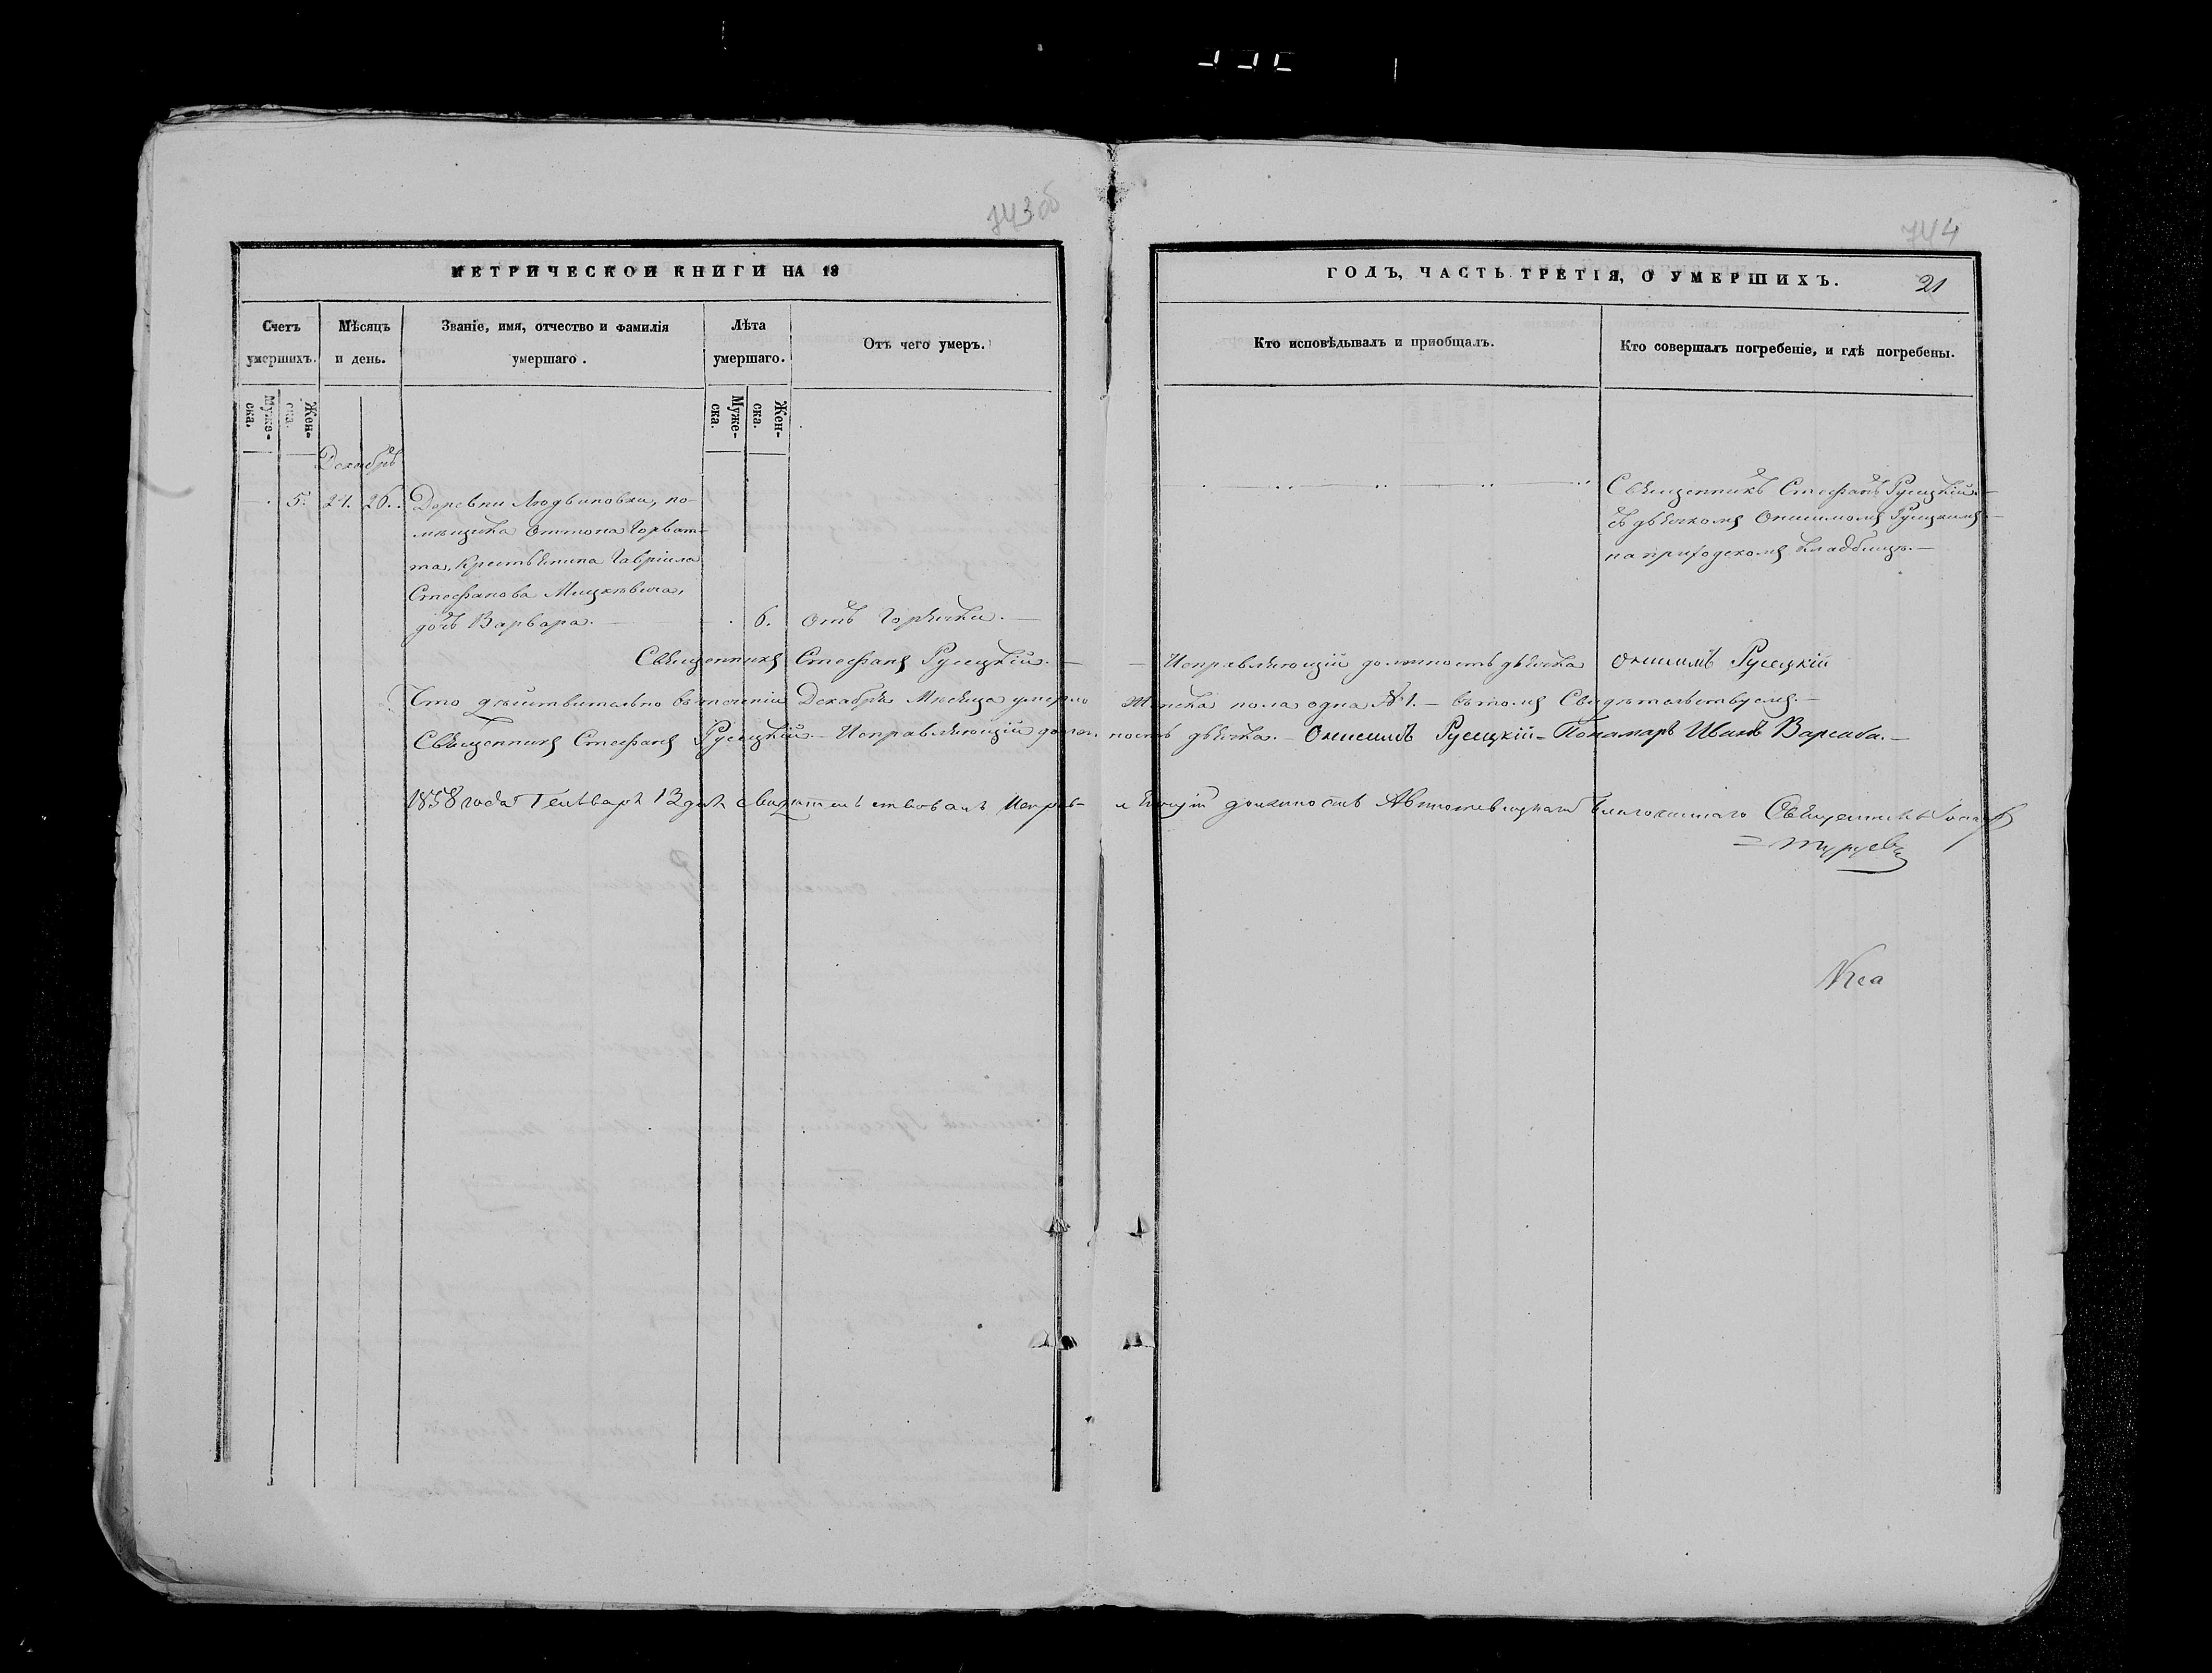 743об
744
МЕТРИЧЕСКОЙ КНИГИ НА 18
ГОДЪ, ЧАСТЬ ТРЕТІЯ, О УМЕРШИХЪ.
21
Счетъ умершихъ.
Мѣсяцъ и день.
Званіе, имя, отчество и фамилія умершаго.
Лѣта умершаго.
Отъ чего умеръ.
Кто исповѣдывалъ и пріобщалъ.
Кто совершалъ погребеніе, и гдѣ погребены.
Муже-ска.
Жен-ска.
Муже-ска.
Жен-ска.
Декабрь
5. 24. 26. Деревни Людвиновки, по-
мѣщика Оттона Горват-
та, Крестьянина Гавріила
Стефанова Мицкевича,
дочь Варвара. — 6. Отъ Горячки. —
Священникъ Стефанъ Русецкій
съ дьячкомъ Онисимомъ Русецкимъ
на приходскомъ кладбищѣ. —
Священникъ Стефанъ Русецкій. — Исправляющій должность дьячка Онисимъ Русецкій
Что дѣйствительно въ теченіи Декабря Мѣсяца умерло женска пола одна № 1. — въ томъ Свидѣтельствуемъ. —
Священникъ Стефанъ Русецкій. — Исправляющій должность дьячка. — Онисимъ Русецкій — Пономарь Иванъ
1858 года Генваря 12 дня свидѣтельствовалъ Исправляющій должность Благочиннаго Священникъ